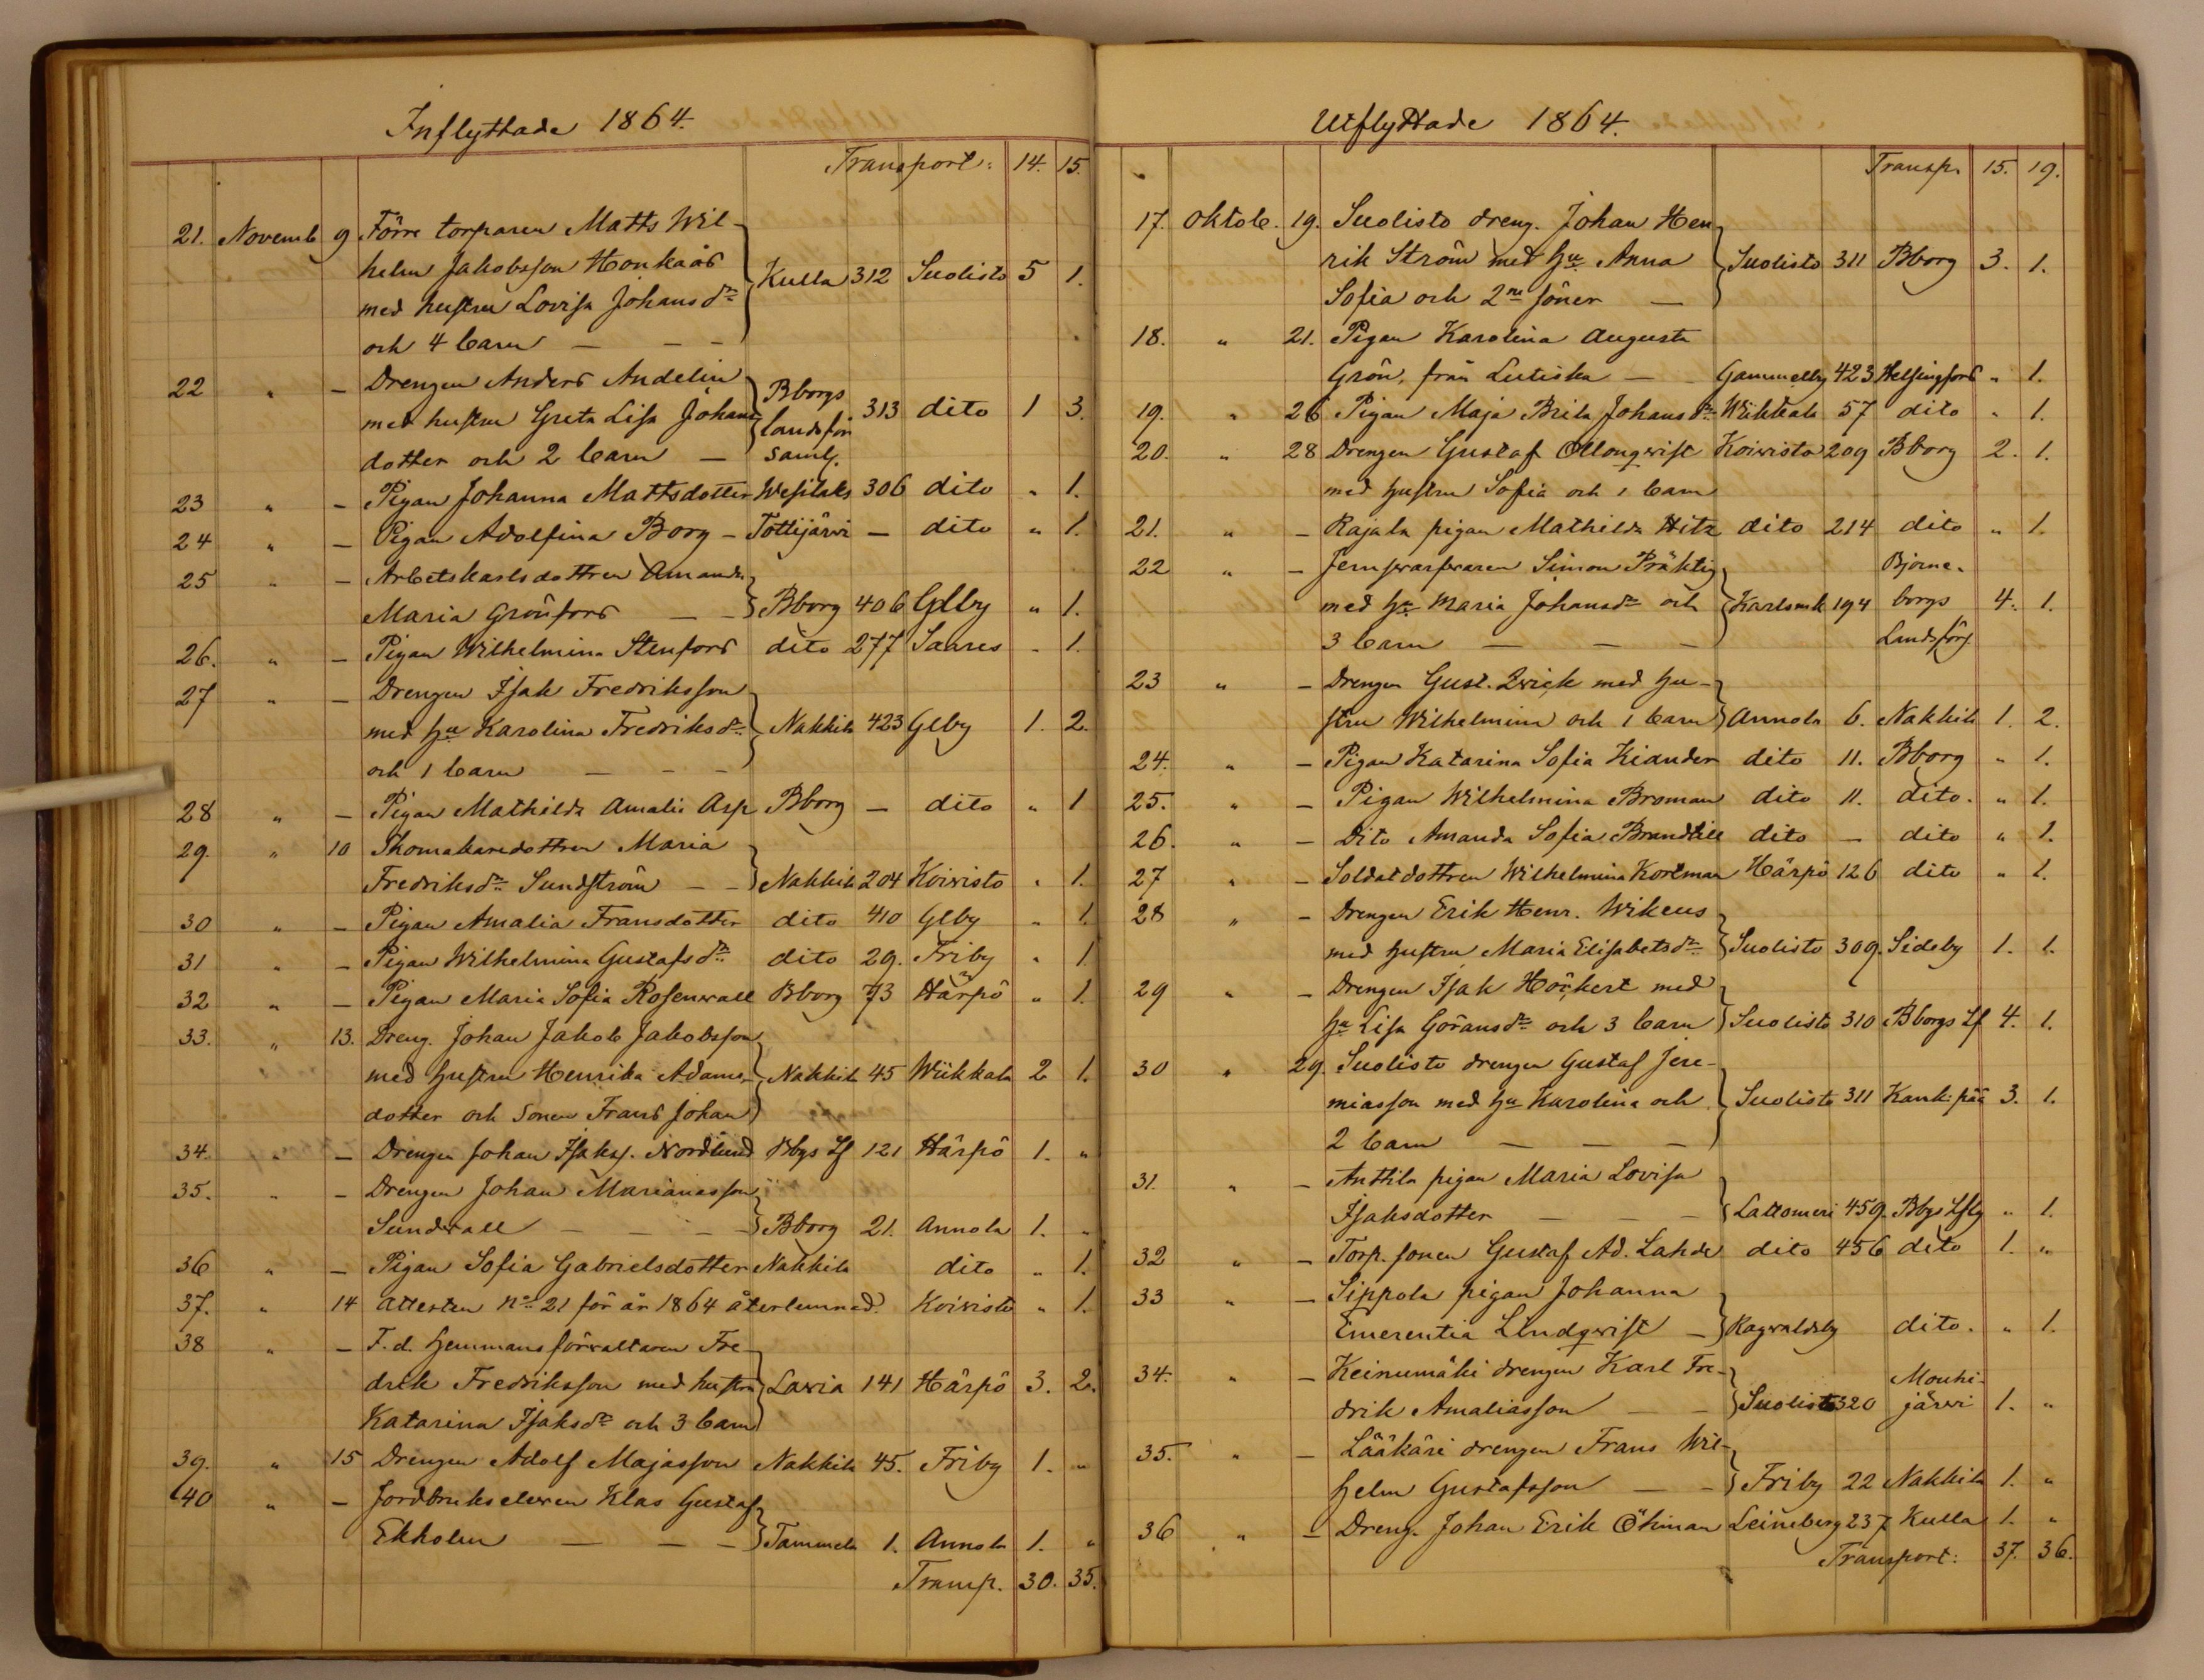 Inflyttade 1864.
Transport: 14. 15.
21. Novemb 9 Förre torparen Matts Wil-
helm Jakobsson Honkaås
med hustru Lovisa Johansdr
och 4 barn — — —
Kulla 312 Suolisto 5 1.
22 " — Drengen Anders Andelin
med hustru Greta Lisa Johans
dotter och 2 barn —
Bborgs
landsför
saml. 313 dito 1 3.
23 " — Pigan Johanna Mattsdotter Wesilaks 306 dito " 1.
24 " — Pigan Adolfina Borg — Tottijärvi — dito " 1.
25 " — Arbetskarlsdottren Amanda
Maria Grönfors — — Bborg 406 Glby " 1.
26. " — Pigan Wilhelmina Stenfors dito 277 Saares - 1.
27 " — Drengen Isak Fredriksson
med hu Karolina Fredriksdr Nakkila 423 Glby 1. 2.
och 1 barn — — —
28 " — Pigan Mathilda Amalia Asp Bborg — dito " 1
29. " 10 Skomakaredottren Maria
Fredriksdr Sundström — — Nakkila 204 Koivisto " 1.
30 " — Pigan Amalia Fransdotter dito 410 Glby " 1.
31 " — Pigan Wilhelmina Gustafsdr dito 29. Friby " 1
32 " — Pigan Maria Sofia Rosenwall Bborg 73 Härpö " 1.
33. " 13. Dreng. Johan Jakob Jakobsson
med hustru Henrika Adams- Nakkila 45 Wiikkala 2 1.
dotter och sonen Frans Johan
34 " — Drengen Johan Isaks. Nordlund Bbgs Lf 121 Härpö 1. "
35. " — Drengen Johan Marianasson
Sundvall — — — Bborg 21. Annola 1. "
36 " — Pigan Sofia Gabrielsdotter Nakkila dito " 1.
37. " 14 Attesten No 21 för år 1864 återlemnad. Koivisto " 1.
38 " — F.d. hemmansförvaltaren Fre-
drik Fredriksson med hustru Lavia 141 Härpö 3. 2.
Katarina Isaksdr och 3 barn
39. " 15 Drengen Adolf Majasson Nakkila 45. Friby 1. "
40 " — Jordbrukseleven Klas Gustaf
Ekholm — — — Tammela 1. Annola 1. "
Transp. 30. 35.
Utflyttade 1864.
Transp. 15. 19.
17. Oktob. 19. Suolisto dreng. Johan Hen-
rik Ström med hu Anna Suolisto 311 Bborg 3. 1.
Sofia och 2ne söner —
18. " 21. Pigan Karolina Augusta
Grön, från Lutiska — Gammelby 423 Helsingfors " 1.
19. " 26 Pigan Maja Brita Johansdr Wiikkala 57 dito " 1.
20. " 28 Drengen Gustaf Ollonqvist Koivisto 209 Bborg 2. 1.
med hustru Sofia och 1 barn
21. " — Rajala pigan Mathilda Hitz dito 214 dito " 1.
22 " — Jernsvarfvaren Simon Präktig
med hu Maria Johansdr och Karlsmk 194
3 barn — — —
Björne-
borgs 4. 1.
Landsförs.
23 " — Drengen Gust. Qvick med hu-
stru Wilhelmina och 1 barn Annola 6. Nakkila 1. 2.
24. " — Pigan Katarina Sofia Kiander dito 11. Bborg " 1.
25. " — Pigan Wilhelmina Broman dito 11. dito. " 1.
26. " — Dito Amanda Sofia Brandtill dito — dito " 1.
27 " — Soldatdottren Wilhelmina Kortman Härpö 126 dito " 1.
28 " — Drengen Erik Henr. Wikeus
med hustru Maria Elisabetsdr Suolisto 309. Sideby 1. 1.
29 " — Drengen Isak Höckert med
hu Lisa Göransdr och 3 barn Suolisto 310 Bborgs Lf 4. 1.
30 " 29. Suolisto drengen Gustaf Jere-
miasson med hu Karolina och Suolisto 311 Kank:pää 3. 1.
2 barn — — —
31. " — Anttila pigan Maria Lovisa
Isaksdotter — — — Lattomeri 459. Bbgs Lfsg " 1.
32 " — Torp. sonen Gustaf Ad. Lahde dito 456 dito 1. "
33 " — Sippola pigan Johanna
Emerentia Lindqvist — Ragvaldsby dito. " 1.
34. " — Keinumäki drengen Karl Fre-
drik Amaliasson — — Suolisto 320
Mouhi-
järvi 1. "
35. " — Lääkäri drengen Frans Wil-
helm Gustafsson — — Friby 22 Nakkila 1. "
36 " — Dreng. Johan Erik Öhman Leineberg 237 Kulla 1. "
Transport: 37. 36.